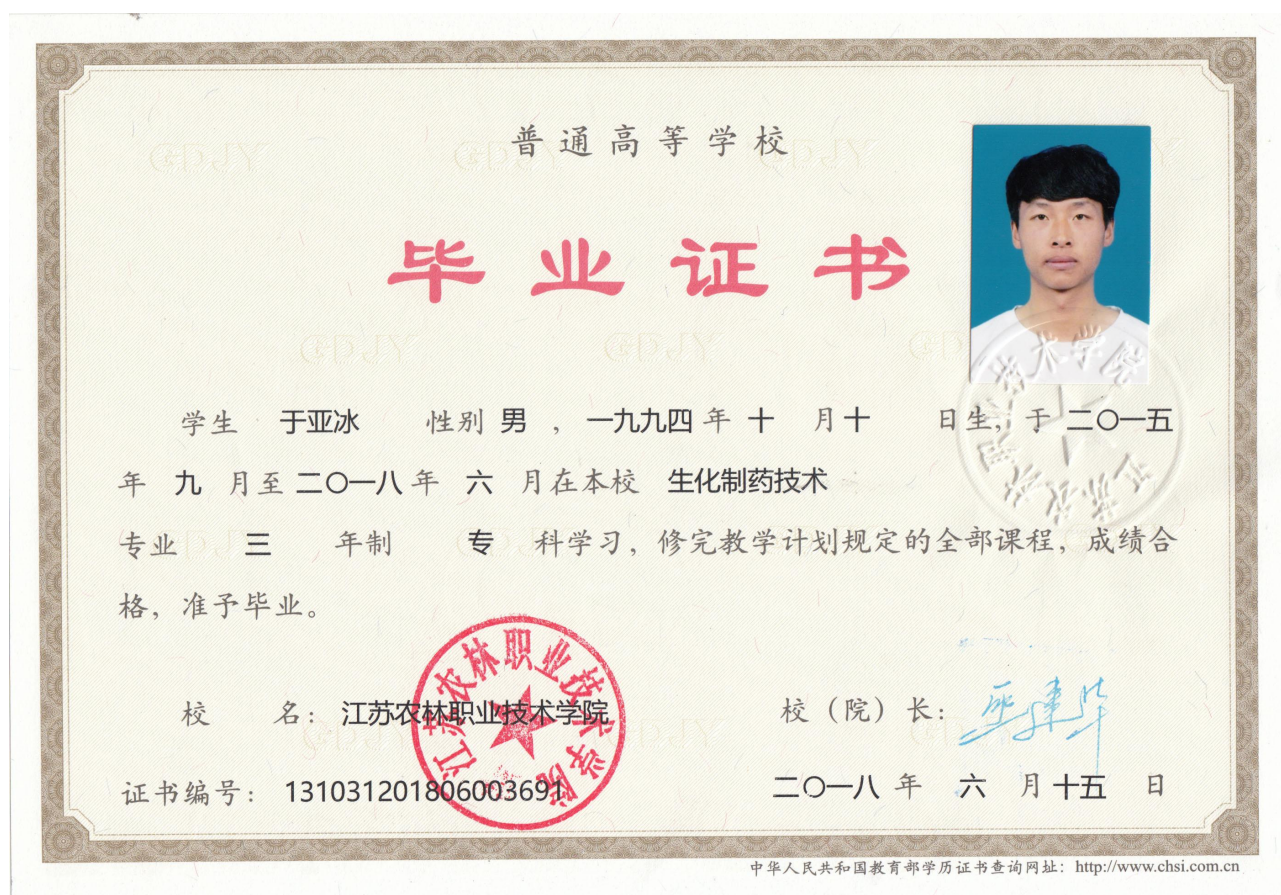 普通高等学校
毕业证书
学生 于亚冰 性别 男 ，一九九四 年 十 月 十 日生，于 二〇一五
年 九 月至 二〇一八 年 六 月在本校 生化制药技术
专业 三 年制 专 科学习，修完教学计划规定的全部课程，成绩合
格，准予毕业。
江苏农林职业技术学院
校 名：江苏农林职业技术学院
校（院）长：
证书编号：131031201806003691
二〇一八 年 六 月 十五 日
中华人民共和国教育部学历证书查询网址：http://www.chsi.com.cn